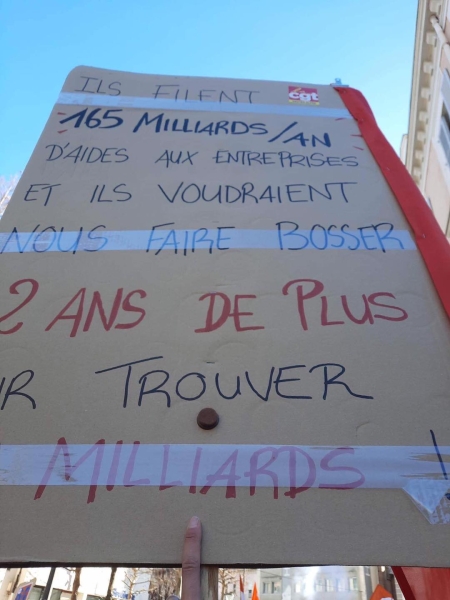 ILS FILENT
cgt
165 MILLIARDS/AN
D'AIDES AUX ENTREPRISES
ET ILS VOUDRAIENT
NOUS FAIRE BOSSER
2 ANS DE PLUS
R TROUVER
MILLIARDS !